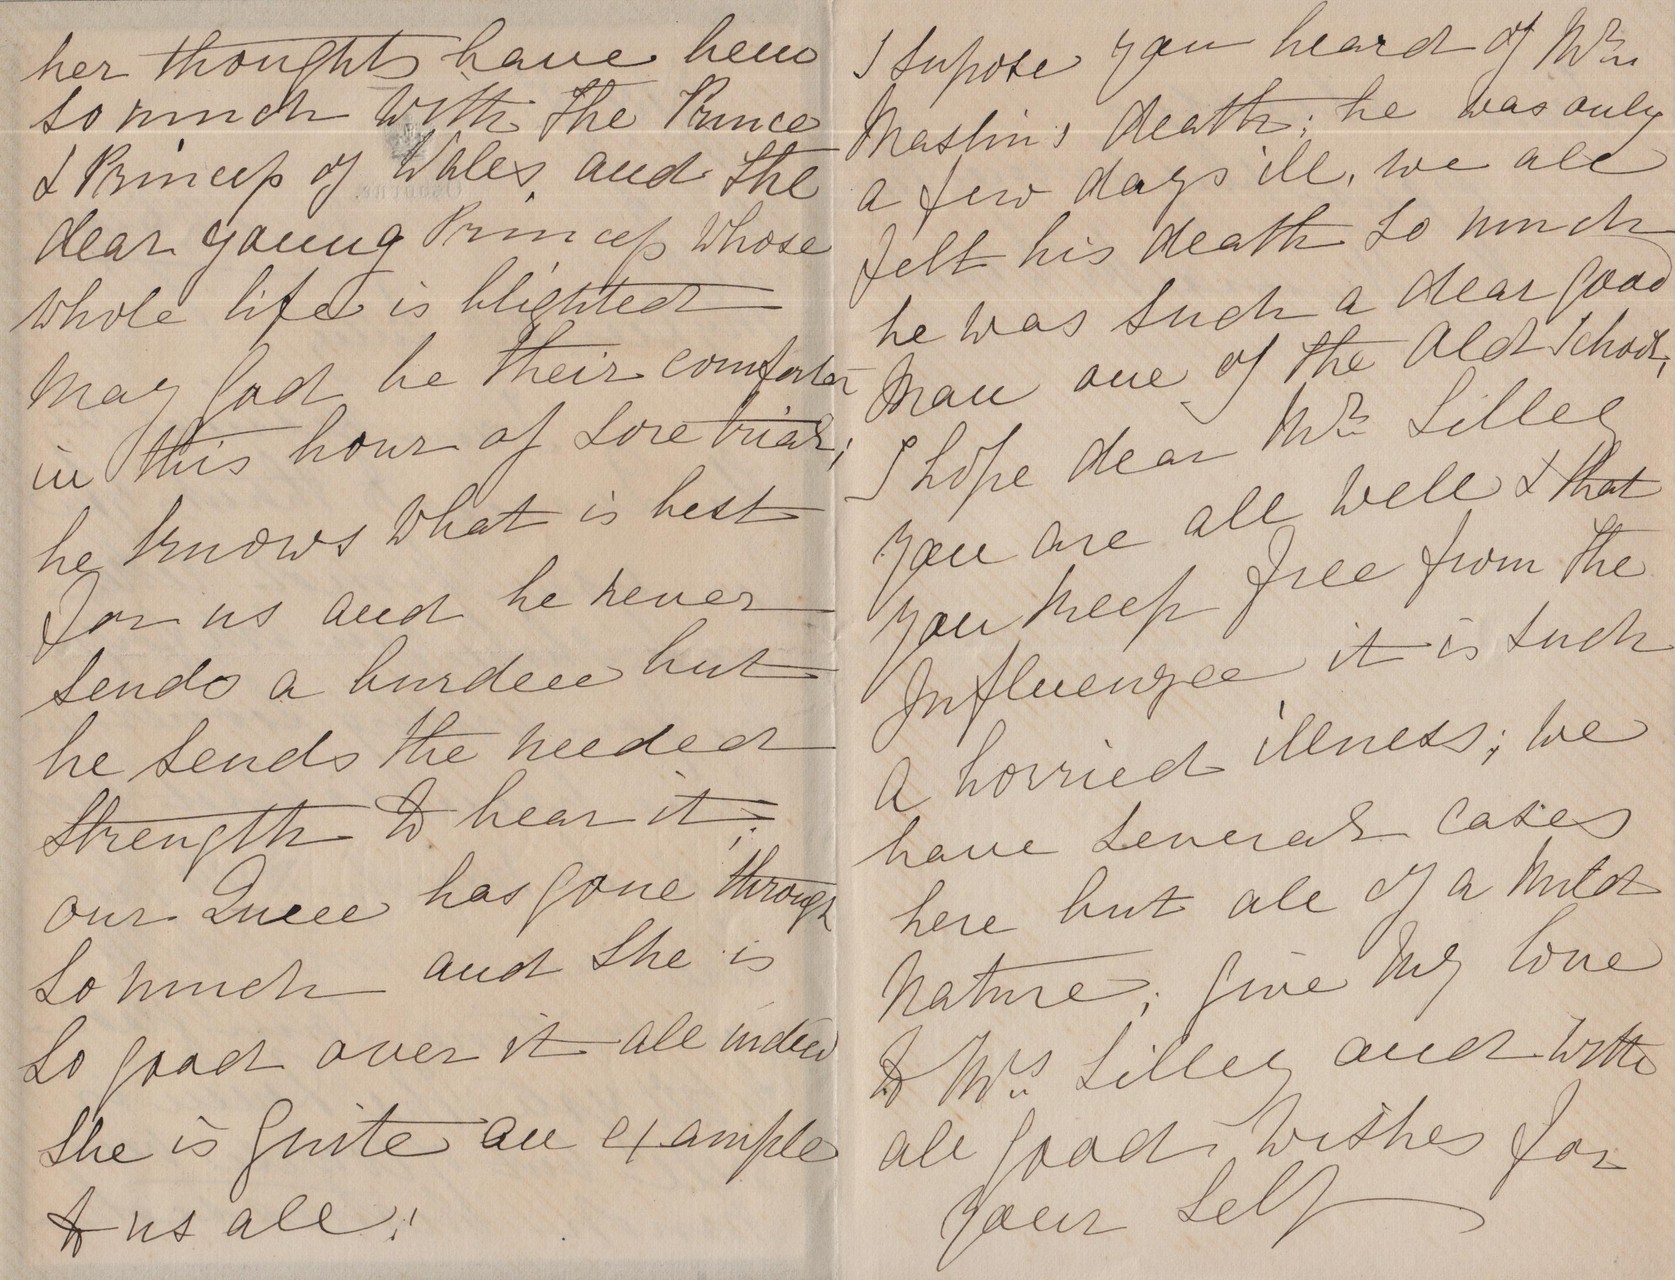 her thoughts have been
so much with the Prince
& Princess of Wales, and the
dear young Princess whose
whole life is blighted
may God be their comforter
in this hour of sore trial;
he knows what is best
for us and he never
sends a burden but
he sends the needed
strength to bear it;
our Queen has gone through
so much and she is
so good over it all indeed
she is quite an example
to us all;
I supose you heard of Mr
Maslin's death; he was only
a few days ill, we all
felt his death so much
he was such a dear good
man one of the Old School,
I hope dear Mr Lilley
you are all well & that
you keep free from the
Influenzee it is such
a horried illness; we
have several cases
here but all of a mild
nature; give my love
to Mrs Lilley and with
all good wishes for
your self